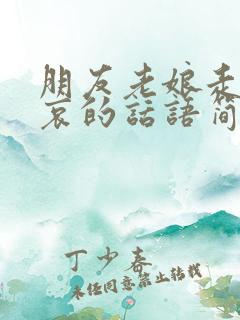 朋友老娘
哀的話語简
丁少春
未经同意禁止转载